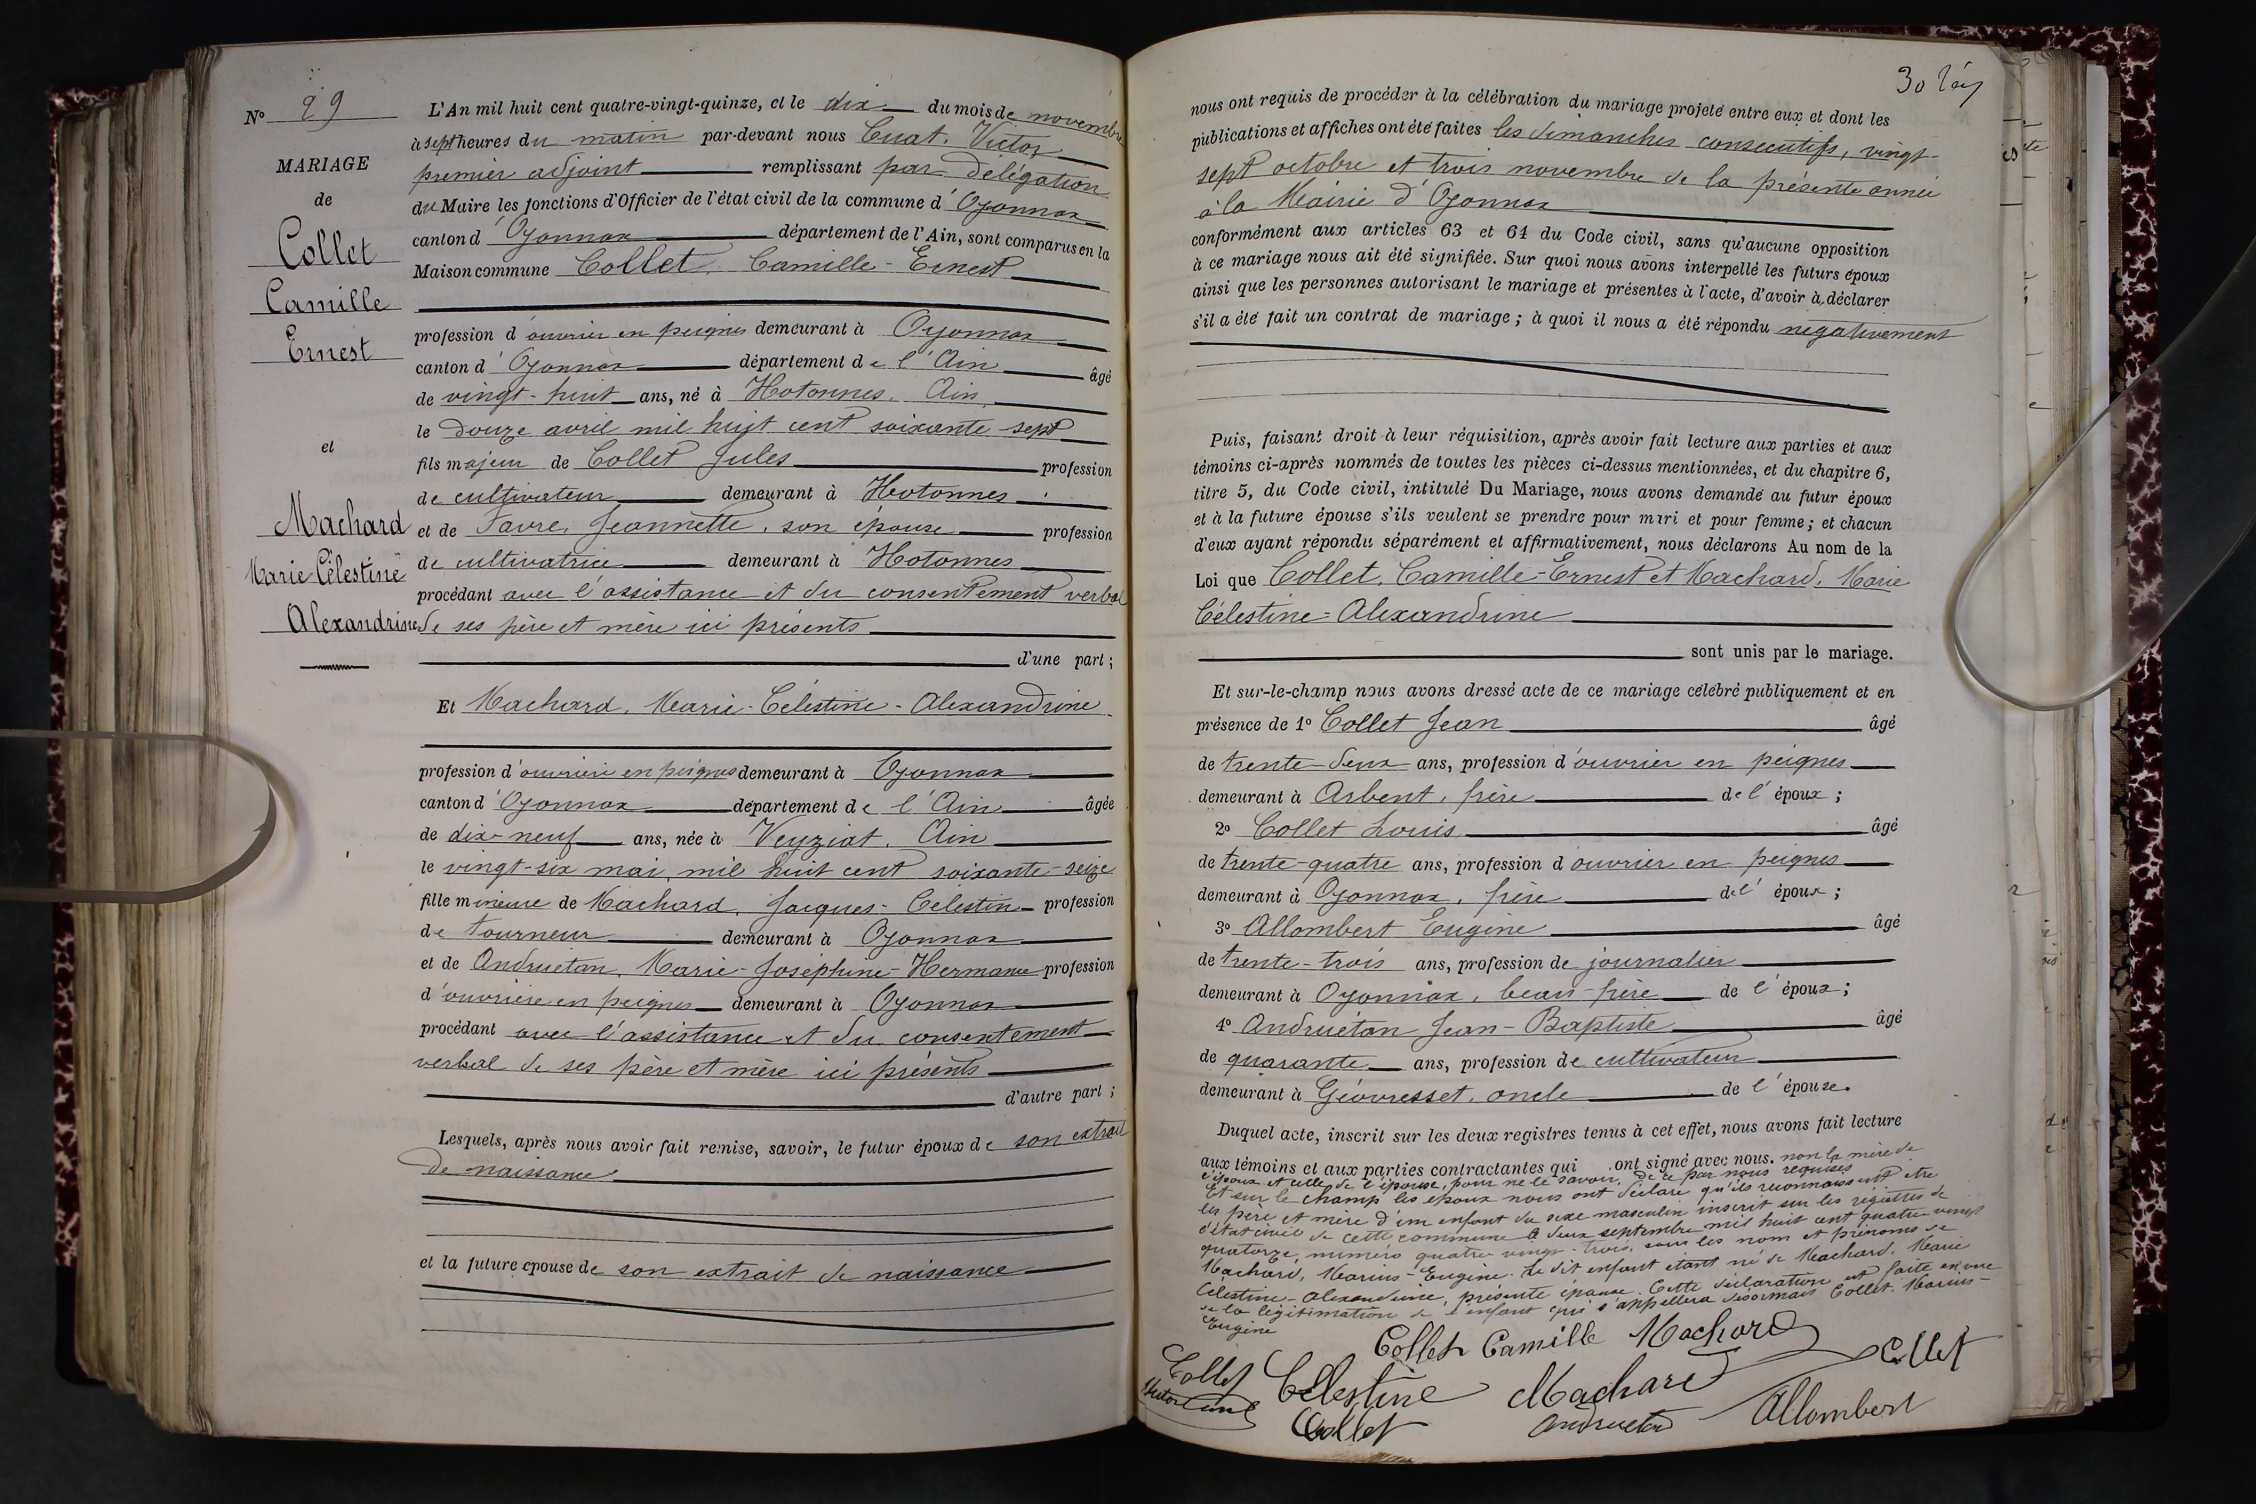 N° 29
MARIAGE
de
Collet
Camille
Ernest
et
Machard
Marie Célestine
Alexandrine
L'An mil huit cent quatre-vingt-quinze, et le dix du mois de novembre
à sept heures du matin par-devant nous Cuat. Victor
premier adjoint remplissant par délégation
du Maire les fonctions d'Officier de l'état civil de la commune d'Oyonnax
canton d'Oyonnax département de l'Ain, sont comparus en la
Maison commune Collet, Camille-Ernest
profession d'ouvrier en peignes demeurant à Oyonnax
canton d'Oyonnax département de l'Ain âgé
de vingt-huit ans, né à Hotonnes. Ain
le douze avril mil huit cent soixante-sept
fils majeur de Collet Jules profession
de cultivateur demeurant à Hotonnes
et de Favre, Jeannette, son épouse profession
de cultivatrice demeurant à Hotonnes
procédant avec l'assistance et du consentement verbal
de ses père et mère ici présents
d'une part ;
Et Machard, Marie-Célestine-Alexandrine
profession d'ouvrière en peignes demeurant à Oyonnax
canton d'Oyonnax département de l'Ain âgée
de dix-neuf ans, née à Veyziat. Ain
le vingt-six mai, mil huit cent soixante-seize
fille mineure de Machard, Jacques-Célestin profession
de tourneur demeurant à Oyonnax
et de Andruetan, Marie-Joséphine-Hermance profession
d'ouvrière en peignes demeurant à Oyonnax
procédant avec l'assistance et du consentement
verbal de ses père et mère ici présents
d'autre part ;
Lesquels, après nous avoir fait remise, savoir, le futur époux de son extrait
de naissance
et la future épouse de son extrait de naissance
30
nous ont requis de procéder à la célébration du mariage projeté entre eux et dont les
publications et affiches ont été faites les dimanches consécutifs, vingt-
sept octobre et trois novembre de la présente année
à la Mairie d'Oyonnax
conformément aux articles 63 et 64 du Code civil, sans qu'aucune opposition
à ce mariage nous ait été signifiée. Sur quoi nous avons interpellé les futurs époux
ainsi que les personnes autorisant le mariage et présentes à l'acte, d'avoir à déclarer
s'il a été fait un contrat de mariage ; à quoi il nous a été répondu négativement
Puis, faisant droit à leur réquisition, après avoir fait lecture aux parties et aux
témoins ci-après nommés de toutes les pièces ci-dessus mentionnées, et du chapitre 6,
titre 5, du Code civil, intitulé Du Mariage, nous avons demandé au futur époux
et à la future épouse s'ils veulent se prendre pour mari et pour femme ; et chacun
d'eux ayant répondu séparément et affirmativement, nous déclarons Au nom de la
Loi que Collet, Camille-Ernest et Machard, Marie
Célestine-Alexandrine
sont unis par le mariage.
Et sur-le-champ nous avons dressé acte de ce mariage célébré publiquement et en
présence de 1° Collet Jean âgé
de trente-deux ans, profession d'ouvrier en peignes
demeurant à Arbent, frère de l'époux ;
2° Collet Louis âgé
de trente-quatre ans, profession d'ouvrier en peignes
demeurant à Oyonnax, frère de l'époux ;
3° Allombert Eugène âgé
de trente-trois ans, profession de journalier
demeurant à Oyonnax, beau-frère de l'époux ;
4° Andruétan Jean-Baptiste âgé
de quarante ans, profession de cultivateur
demeurant à Géovresset, oncle de l'épouse.
Duquel acte, inscrit sur les deux registres tenus à cet effet, nous avons fait lecture
aux témoins et aux parties contractantes qui ont signé avec nous. non la mère de
l'époux et celle de l'épouse, pour ne le savoir, de ce par nous requises
Et sur le champ les époux nous ont déclaré qu'ils reconnaissent etre
les père et mère d'un enfant du sexe masculin inscrit sur les registres de
l'état civil de cette commune le deux septembre mil huit cent quatre vingt
quatorze, numéro quatre vingt-trois, sous les nom et prénoms de
Machard, Marius-Eugène. Le dit enfant étant né de Machard, Marie
Célestine-Alexandrine, présente épouse. Cette déclaration est faite en vue
de la légitimation de l'enfant qui s'appellera désormais Collet Marius-
Eugène
Collet Camille Machard Collet
Collet Célestine Machard
Collet Andruetan Allombert